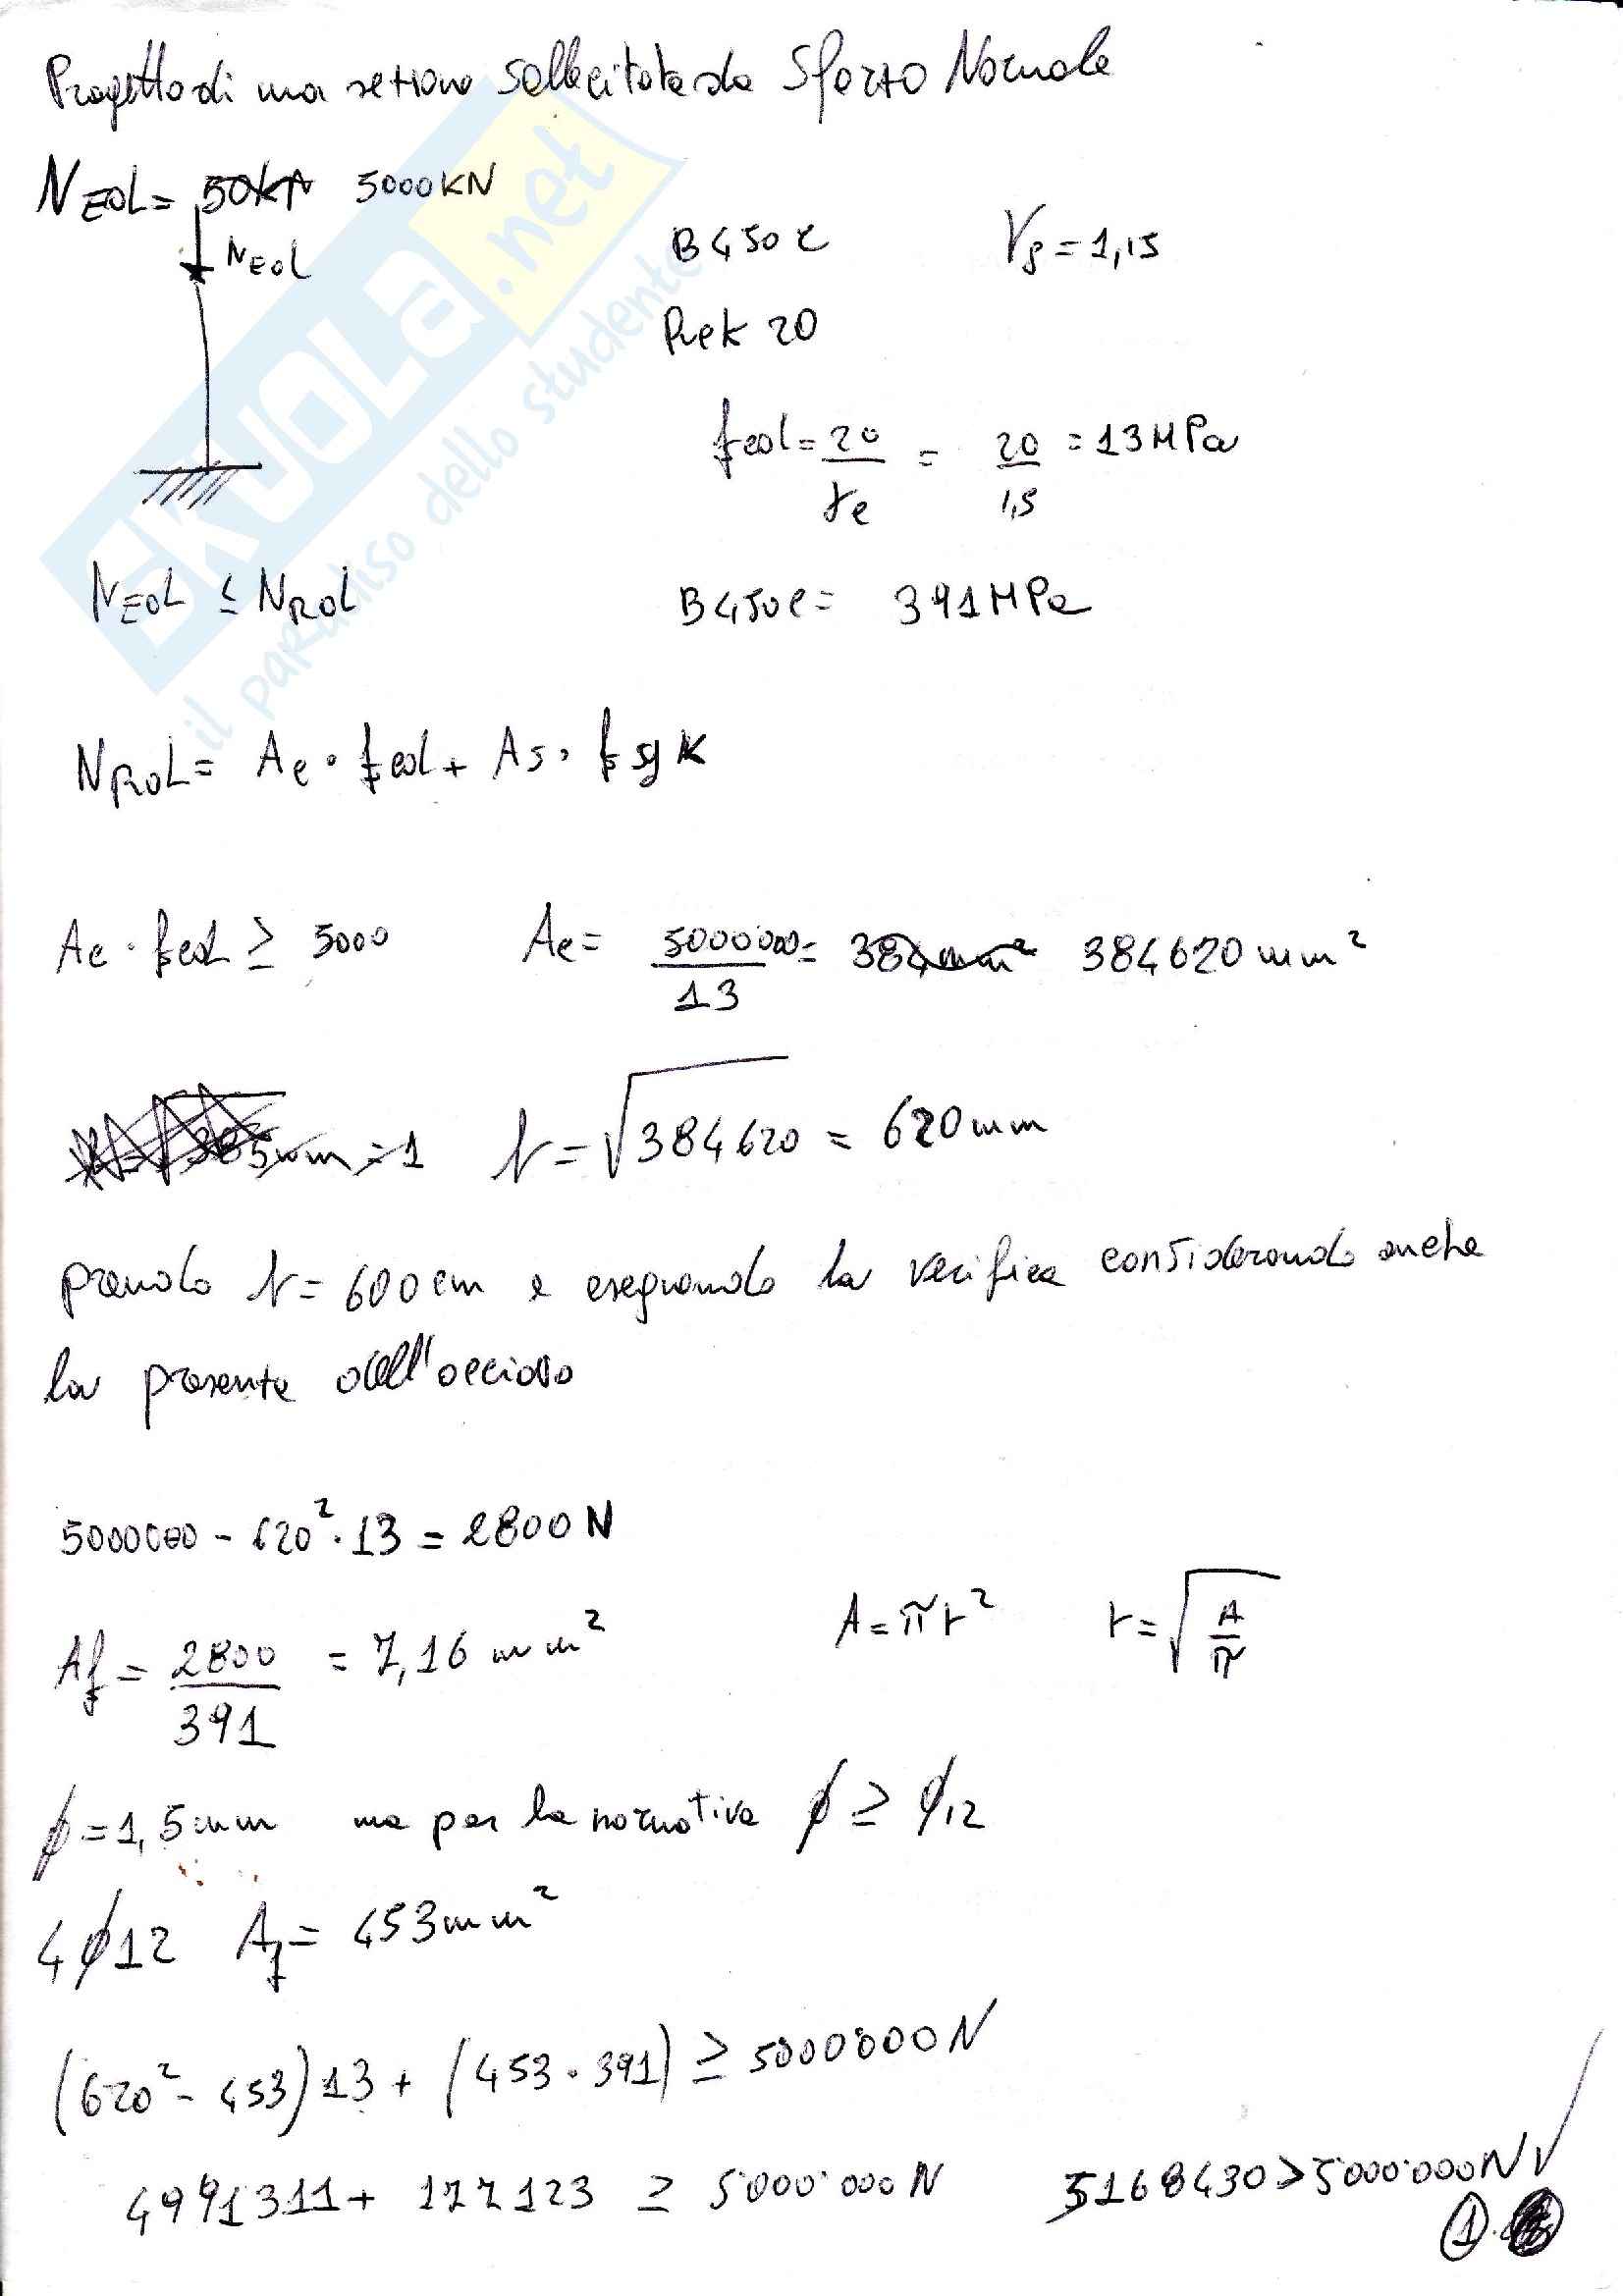 Progetto di una sezione Sollecitata da Sforzo Normale
NEd = 50kN 5000KN
NEd
B450C γs = 1,15
Rck 20
fcd = 20/γc = 20/1,5 = 13MPa
NEd ≤ NRd
B450C = 391MPa
NRd = Ac · fcd + As · fsyk
Ac · fcd ≥ 5000 Ac = 5000000/13 = 384mm² 384620mm²
l = √384620 = 620mm
prendo l = 600cm e eseguendo la verifica considerando anche
la presente dell'acciaio
5000000 - 620² · 13 = 2800N
Af = 2800/391 = 7,16mm² A = πr² r = √A/π
ϕ = 1,5mm ma per la normativa ϕ ≥ ϕ12
4ϕ12 Af = 453mm²
(620² - 453)13 + (453 · 391) ≥ 5000000N
4991311 + 177123 ≥ 5000'000N 5168430 > 5000000N √
1
SKUOLA.net
il paradiso dello studente